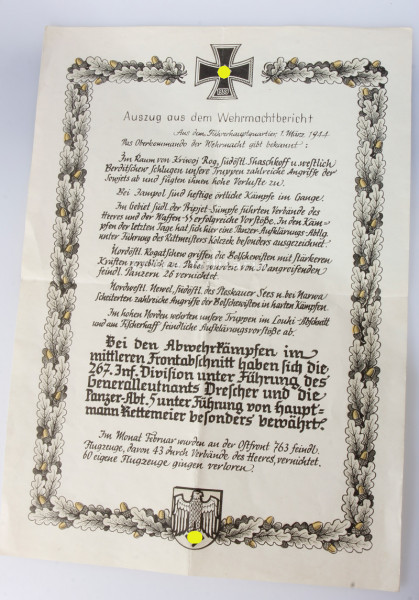 Auszug aus dem Wehrmachtbericht
Aus dem Führerhauptquartier, 1. März 1944
Das Oberkommando der Wehrmacht gibt bekannt:
Im Raum von Kriwoj Rog, südöstl. Shaschkoff u. westlich
Berditschew schlugen unsere Truppen zahlreiche Angriffe der
Sowjets ab und fügten ihnen hohe Verluste zu.
Bei Jampol sind heftige örtliche Kämpfe im Gange.
Im Gebiet südl. der Pripjet-Sümpfe führten Verbände des
Heeres und der Waffen-SS erfolgreiche Vorstöße. In den Käm-
pfen der letzten Tage hat sich hier eine Panzer-Aufklärungs-Abtlg.
unter Führung des Rittmeisters Kolzek besonders ausgezeichnet.
Nordöstl. Rogatschew griffen die Bolschewisten mit stärkeren
Kräften vergeblich an. Dabei wurden von 30 angreifenden
feindl. Panzern 26 vernichtet.
Nordwestl. Newel, südöstl. des Pleskauer Sees u. bei Narwa
scheiterten zahlreiche Angriffe der Bolschewisten in harten Kämpfen.
Im hohen Norden wehrten unsere Truppen im Louhi-Abschnitt
und am Fischerhals feindliche Aufklärungsvorstöße ab.
Bei den Abwehrkämpfen im
mittleren Frontabschnitt haben sich die
267. Inf. Division unter Führung des
Generalleutnants Drescher und die
Panzer-Abt. 5 unter Führung von Haupt-
mann Rettemeier besonders bewährt.
Im Monat Februar wurden an der Ostfront 763 feindl.
Flugzeuge, davon 43 durch Verbände des Heeres, vernichtet.
60 eigene Flugzeuge gingen verloren.